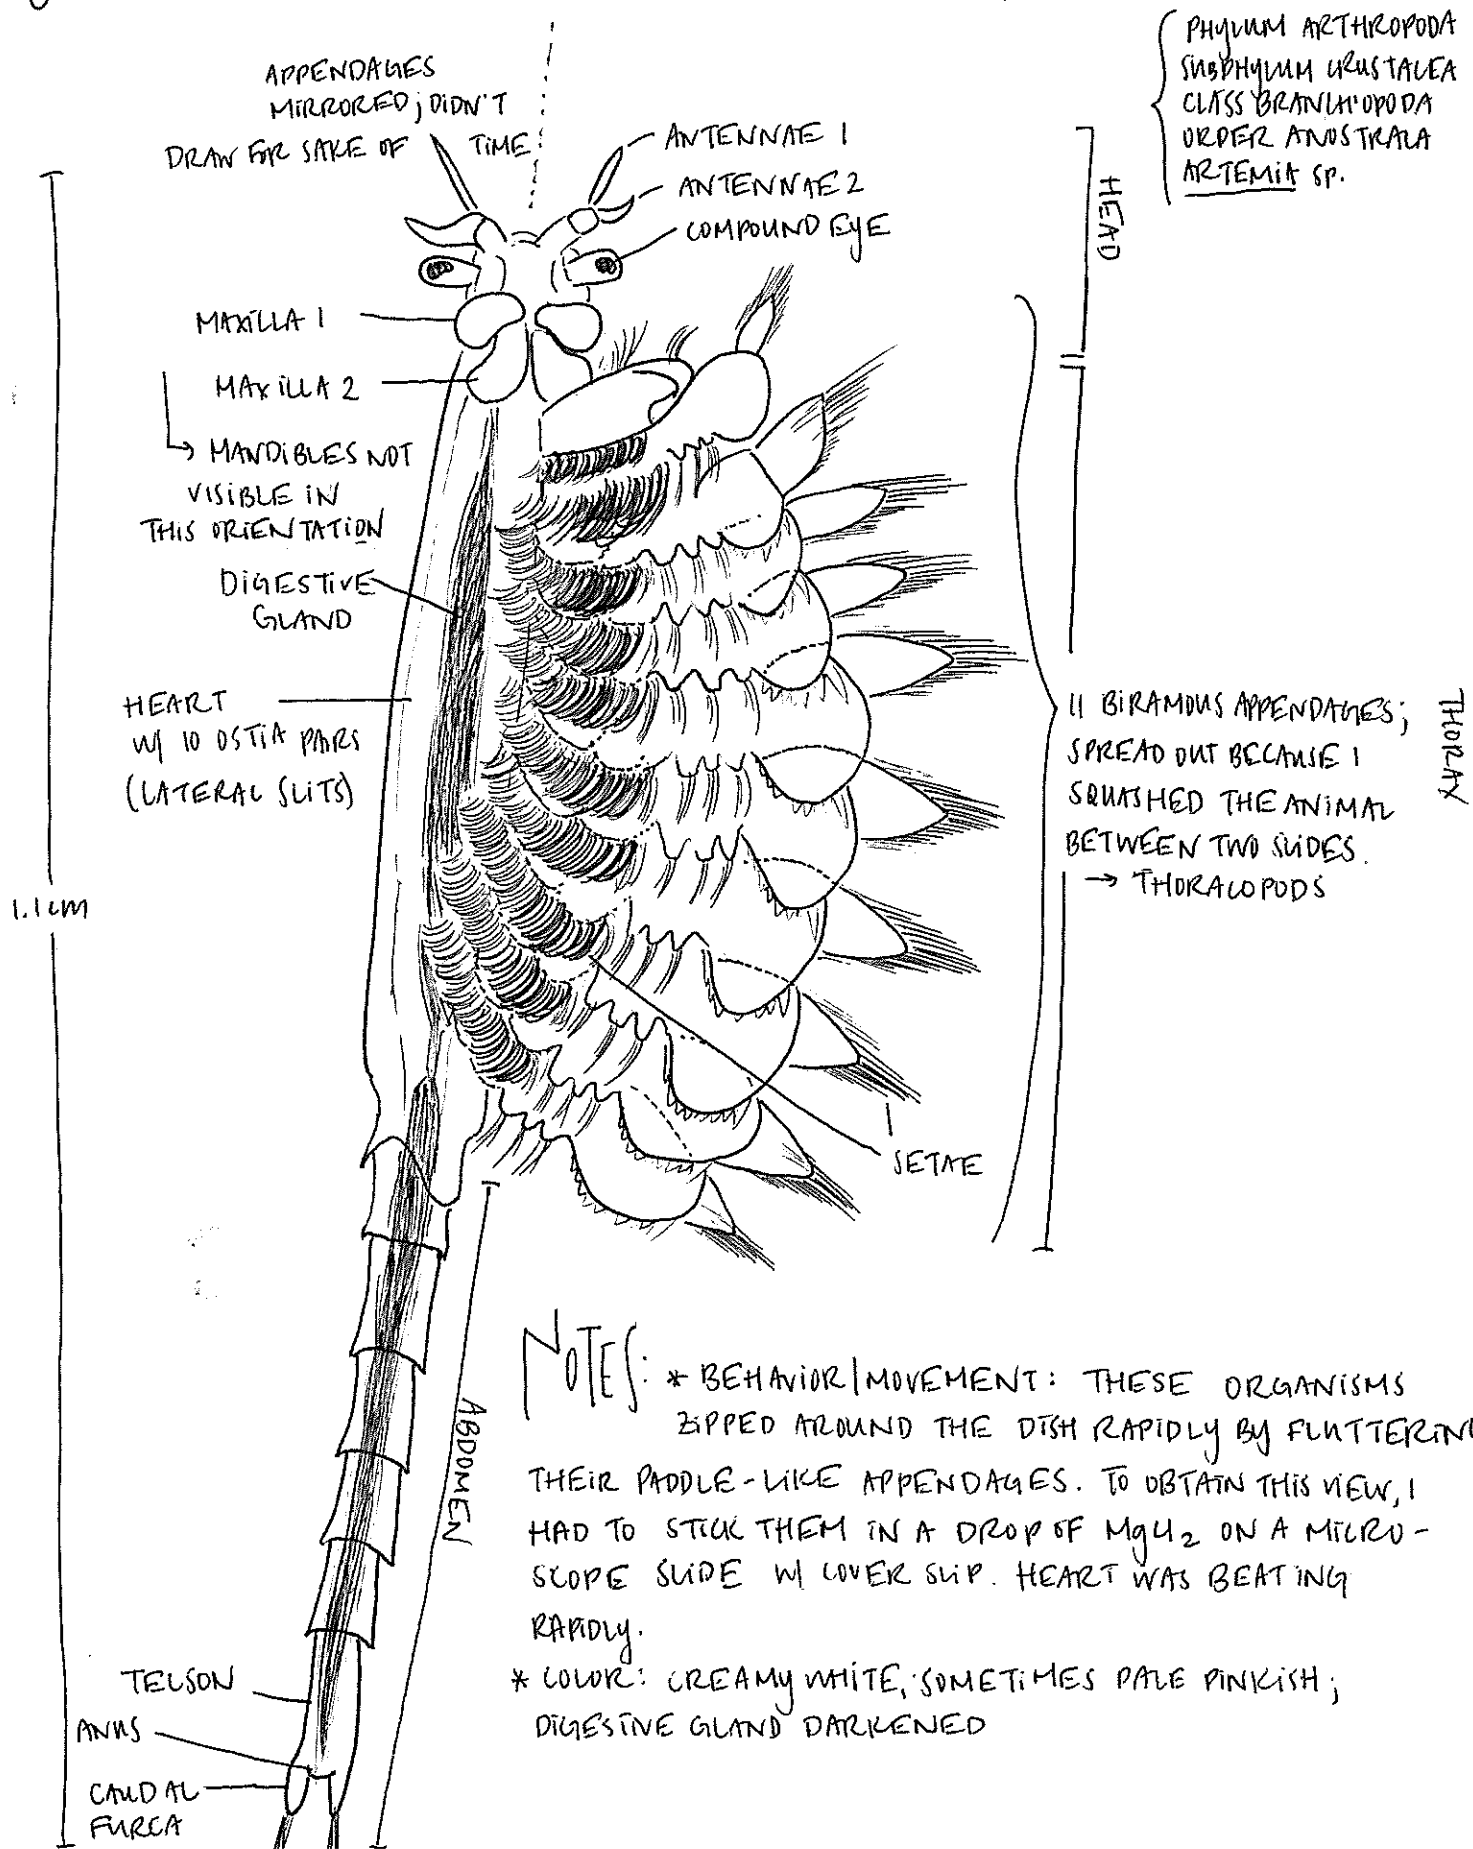 PHYLUM ARTHROPODA
SUBPHYLUM CRUSTACEA
CLASS BRANCHIOPODA
ORDER ANOSTRACA
ARTEMIA SP.
APPENDAGES
MIRRORED; DIDN'T
DRAW FOR SAKE OF TIME
ANTENNAE 1
ANTENNAE 2
COMPOUND EYE
HEAD
MAXILLA 1
MAXILLA 2
→ MANDIBLES NOT
VISIBLE IN
THIS ORIENTATION
DIGESTIVE
GLAND
HEART
W/ 10 OSTIA PAIRS
(LATERAL SLITS)
1.1cm
11 BIRAMOUS APPENDAGES;
SPREAD OUT BECAUSE I
SQUASHED THE ANIMAL
BETWEEN TWO SLIDES.
→ THORACOPODS
THORAX
SETAE
ABDOMEN
NOTES: * BEHAVIOR/MOVEMENT: THESE ORGANISMS
ZIPPED AROUND THE DISH RAPIDLY BY FLUTTERING
THEIR PADDLE-LIKE APPENDAGES. TO OBTAIN THIS VIEW, I
HAD TO STICK THEM IN A DROP OF MgCl2 ON A MICRO-
SCOPE SLIDE W/ COVER SLIP. HEART WAS BEATING
RAPIDLY.
* COLOR: CREAMY WHITE, SOMETIMES PALE PINKISH;
DIGESTIVE GLAND DARKENED
TELSON
ANUS
CAUDAL
FURCA